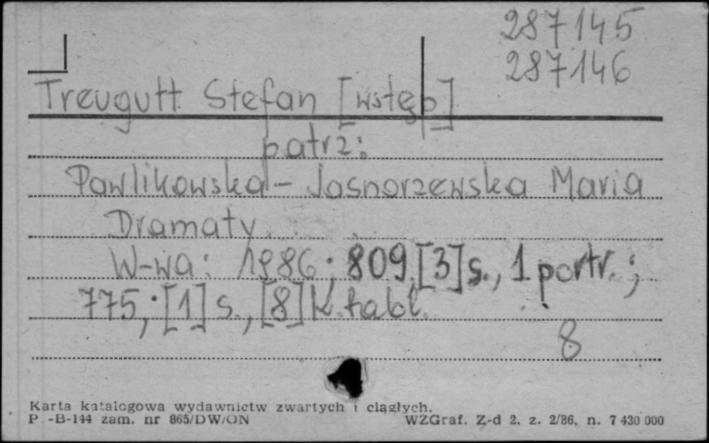 287145
287146
Treugutt Stefan [wstęp]
patrz:
Pawlikowska - Jasnorzewska Maria
Dramaty.
W-wa: 1986; 809,[3]s., 1 portr.;
775,[1]s.,[8]k.tabl.
8
Karta katalogowa wydawnictw zwartych i ciągłych.
P -B-144 zam. nr 865/DW/ON WZGraf. Z-d 2, z. 2/86, n. 7 430 000